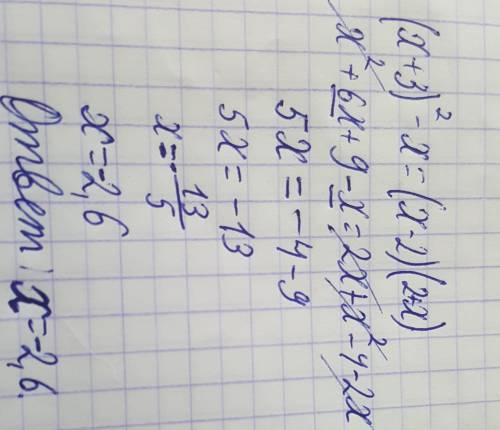 (x+3)² - x = (x-2)(2+x)
x² + 6x + 9 - x = 2x + x² - 4 - 2x
5x = -4 - 9
5x = -13
x = - 13/5
x = -2,6
Ответ: x = -2,6.